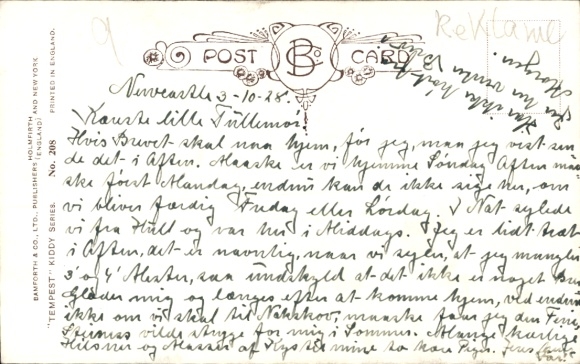 Reklame
POST CARD
B & Co
Newcastle 3-10-28.
Kæreste lille Tullemor.
Hvis Brevet skal naa hjem, før jeg, maa jeg vist sen
de det i Aften. Maaske er vi hjemme Søndag Aften maa
ske først Mandag, endnu kan de ikke sige her, om
vi bliver færdig Fredag eller Lørdag. I Nat sejlede
vi fra Hull og var her i Middags. Jeg er lidt træt
i Aften, det er navnlig, naar vi sejler, at jeg mangler
3' og 4' Mester, saa undskyld at det ikke er noget
Glæder mig og længes efter at komme hjem, ved endnu
ikke om vi skal til Nakskov, maaske faar jeg den Ferie
vilde stryge for mig i Sommer. Mange kærlige
Hilsner og Masser af Kys til mine to kære
BAMFORTH & CO., LTD., PUBLISHERS (ENGLAND) HOLMFIRTH AND NEW YORK
"TEMPEST" KIDDY SERIES. No. 208 PRINTED IN ENGLAND.